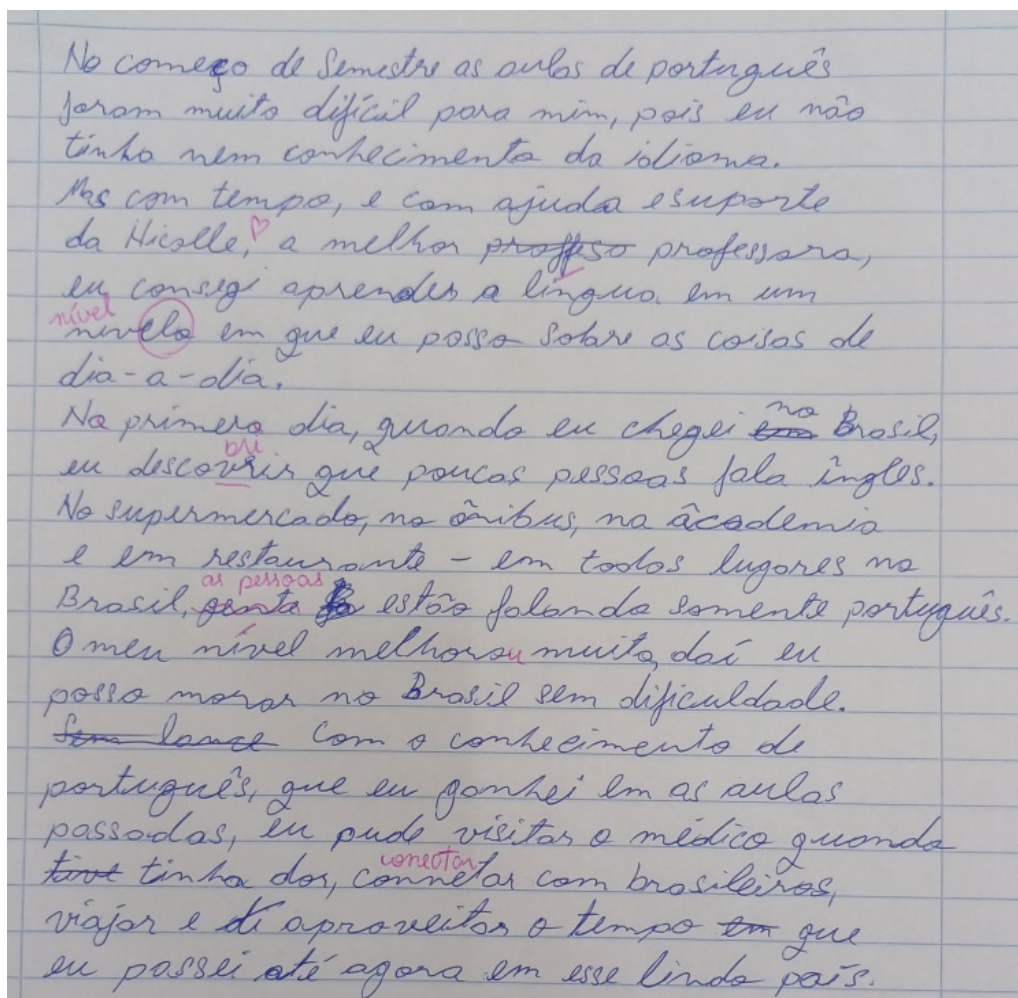 No começo de Semestre as aulas de português
foram muito difícil para mim, pois eu não
tinha nem conhecimento da idioma.
Mas com tempo, e com ajuda e suporte
da Nicolle, ♡ a melhor proffeso professora,
eu consegi aprender a língua em um
nível nivelo em que eu posso sobre as coisas de
dia-a-dia.
Na primero dia, quando eu chegei em no Brasil,
eu descovrir bri que poucas pessoas fala îngles.
No supermercado, no ônibus, na âcademia
e em restaurante - em todos lugares no
Brasil, genta as pessoas estão falando somente português.
O meu nível melhorou muito, daí eu
posso morar no Brasil sem dificuldade.
Com o conhecimento de
português, que eu ganhei em as aulas
passadas, eu pude visitar o médico quando
tive tinha dor, connetar conectar com brasileiros,
viajar e aproveitar o tempo em que
eu passei até agora em esse lindo país.